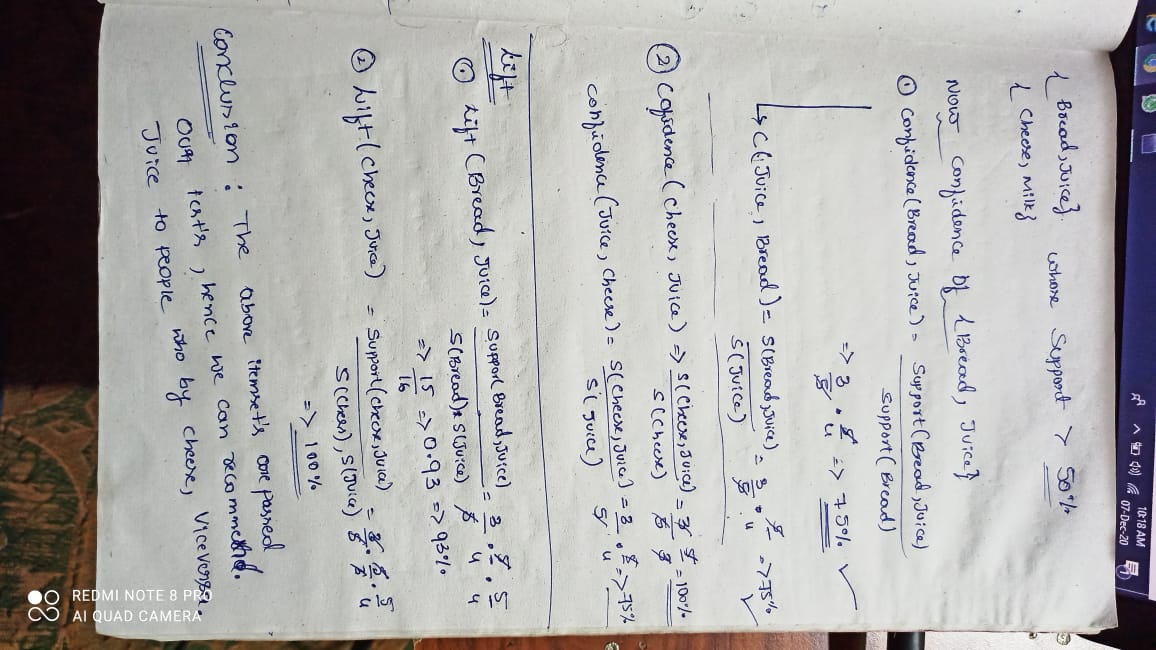 { Bread, Juice} whose Support > 50%
{ Cheese, Milk}
Now confidence Of { Bread, Juice}
① Confidence (Bread, Juice) = Support (Bread, Juice)
Support (Bread)
=> 3/5 * 5/4 => 75% ✓
↳ C (Juice, Bread) = S(Bread, Juice) / S(Juice) = 3/5 * 5/4 => 75% ✓
② Cofidence ( Cheese, Juice) => S(Cheese, Juice) / S(Cheese) = 3/5 5/3 = 100%
confidence (Juice, Cheese) = S(Cheese, Juice) / S(Juice) = 3/5 * 5/4 => 75%
Lift
① Lift (Bread, Juice) = Suppor( Bread, Juice) / S(Bread) * S(Juice) = 3/5 * 5/4 * 5/4
=> 15/16 => 0.93 => 93%
② Lift (Cheese, Juice) = Support (cheese, Juice) / S(Chees), S(Juice) = 3/5 * 5/3 * 5/4
=> 100%
Conclusion : The above itemset's are passed
Our test's, hence we can recommend.
Juice to people who by cheese, Viceversa.
REDMI NOTE 8 PRO
AI QUAD CAMERA
10:18 AM
07-Dec-20